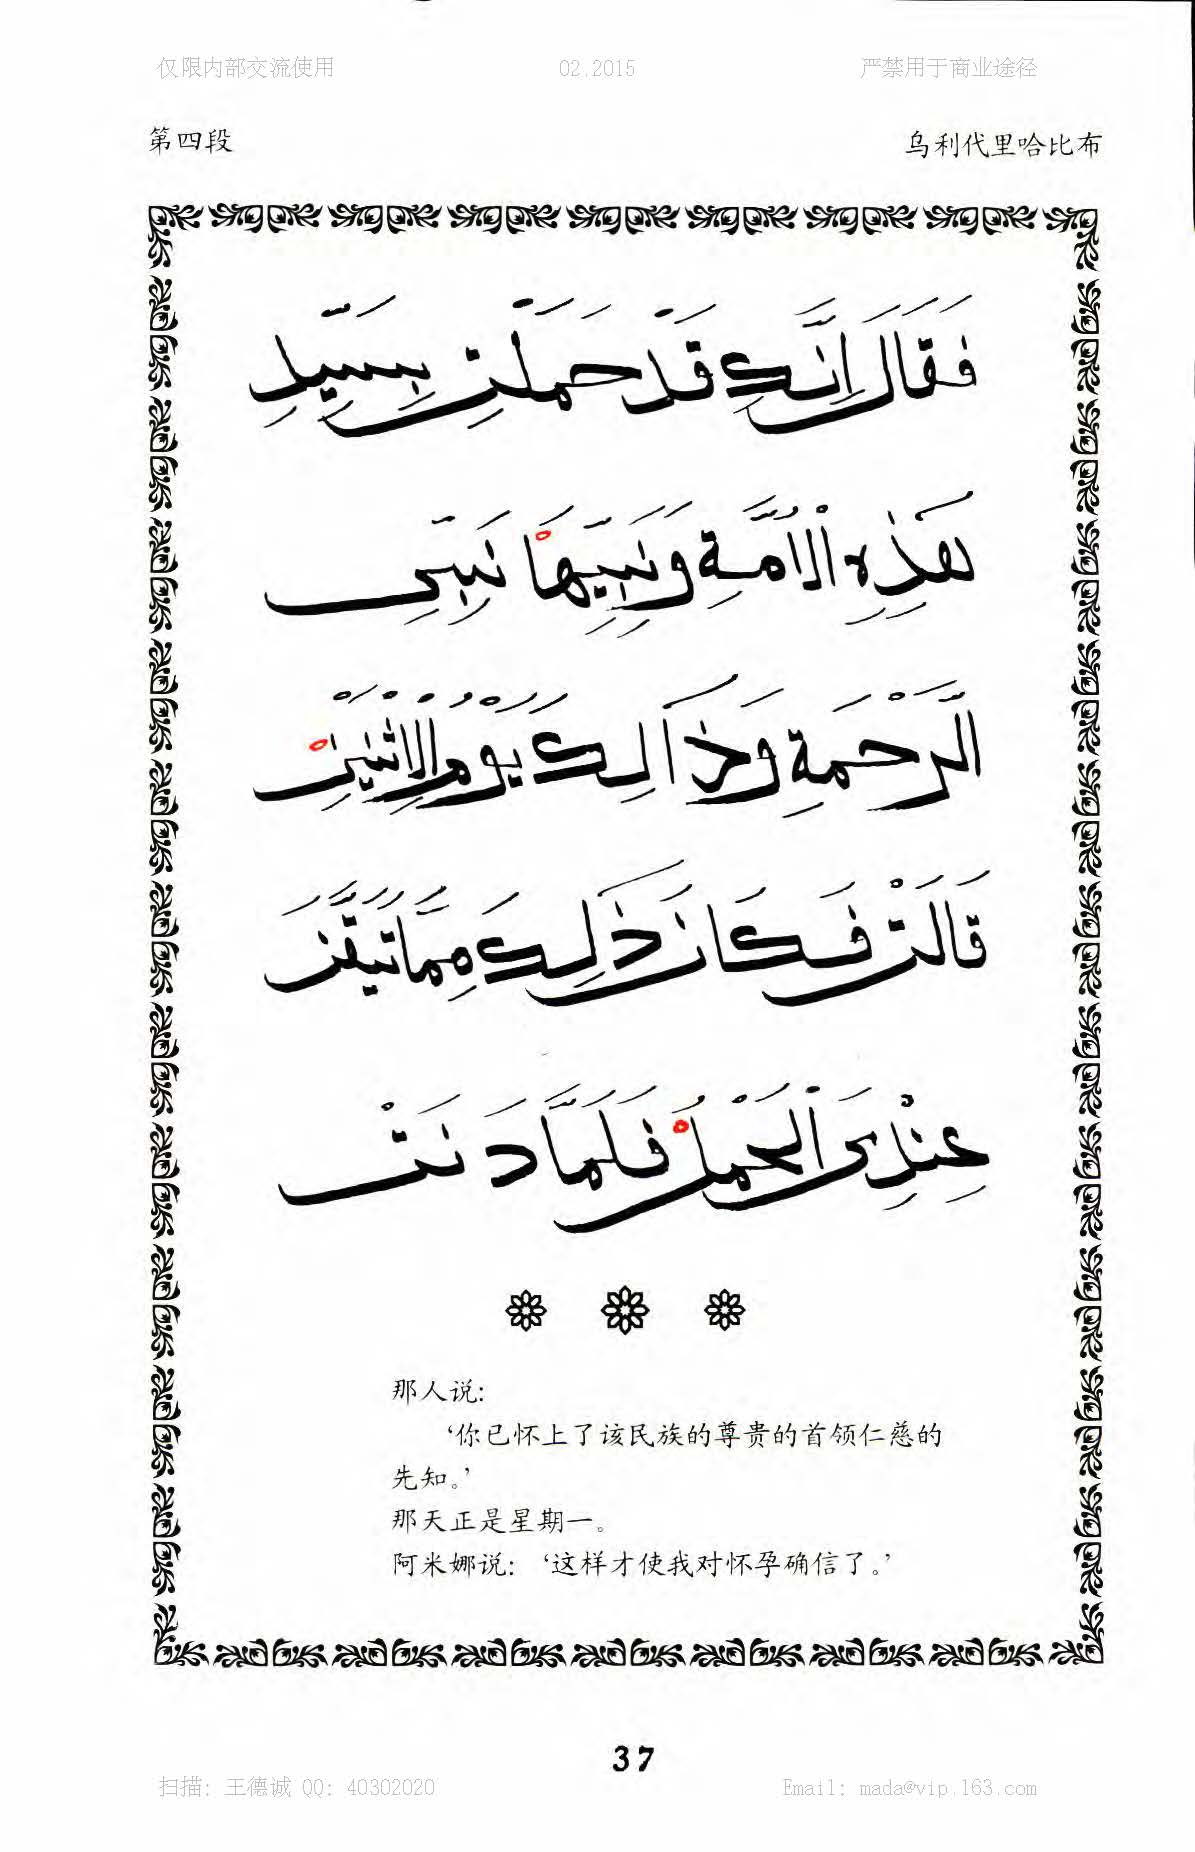 仅限内部交流使用 02.2015 严禁用于商业途径
第四段 乌利代里哈比布
فَقَالَ اِنَّكِ قَدْ حَمَلْتِ بِسَيِّدِ
هٰذِهِ الْاُمَّةِ وَنَبِيِّهَا نَبِىِّ
الرَّحْمَةِ وَذَالِكَ يَوْمُ الْاِثْنَيْنِ
قَالَتْ فَكَانَ ذٰلِكَ مِمَّا تَيَقَّنَ
عِنْدِىَ الْحَمْلُ فَلَمَّا دَنَتْ
那人说:
‘你已怀上了该民族的尊贵的首领仁慈的
先知。’
那天正是星期一。
阿米娜说: ‘这样才使我对怀孕确信了。’
37
扫描: 王德诚 QQ: 40302020 Email: mada@vip.163.com